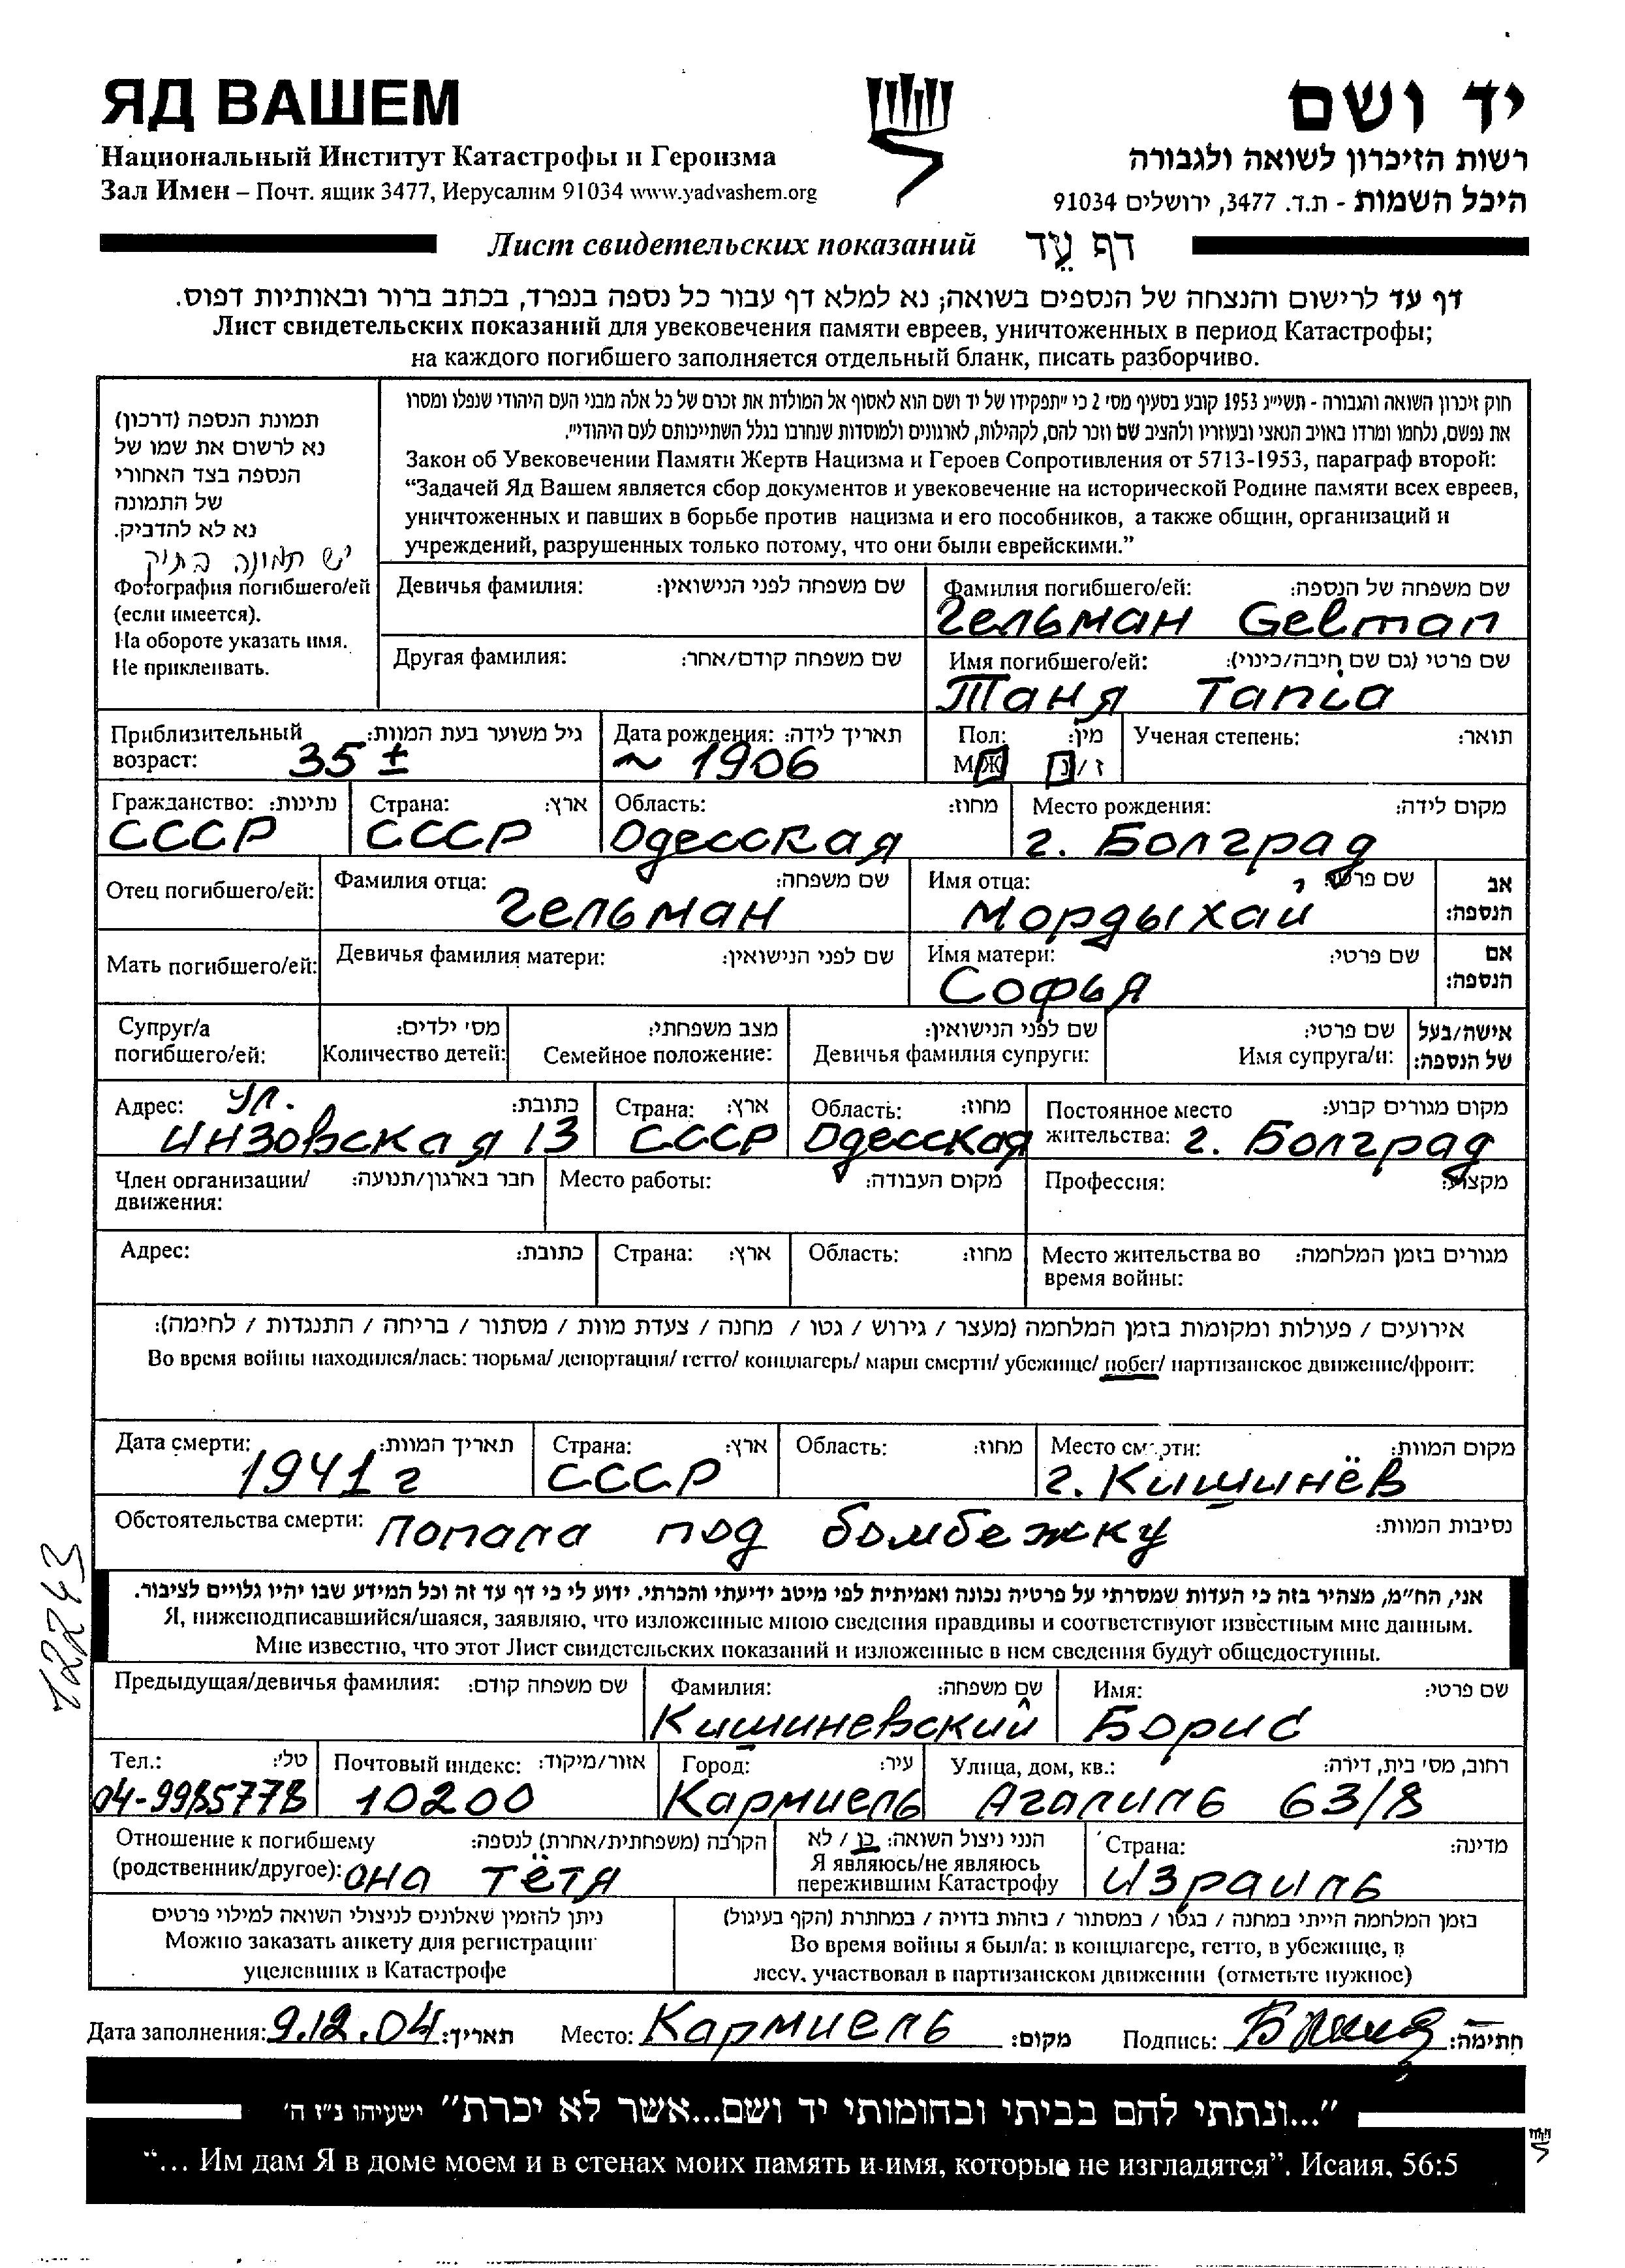 ЯД ВАШЕМ
יד ושם
Национальный Институт Катастрофы и Героизма
רשות הזיכרון לשואה ולגבורה
Зал Имен – Почт. ящик 3477, Иерусалим 91034 www.yadvashem.org
היכל השמות - ת.ד. 3477, ירושלים 91034
Лист свидетельских показаний דף עֵד
דף עד לרישום והנצחה של הנספים בשואה; נא למלא דף עבור כל נספה בנפרד, בכתב ברור ובאותיות דפוס.
Лист свидетельских показаний для увековечения памяти евреев, уничтоженных в период Катастрофы;
на каждого погибшего заполняется отдельный бланк, писать разборчиво.
תמונת הנספה (דרכון)
נא לרשום את שמו של
הנספה בצד האחורי
של התמונה
נא לא להדביק.
יש תמונה בתיק
Фотография погибшего/ей
(если имеется).
На обороте указать имя.
Не приклеивать.
חוק זיכרון השואה והגבורה - תשי״ג 1953 קובע בסעיף מס׳ 2 כי ״תפקידו של יד ושם הוא לאסוף אל המולדת את זכרם של כל אלה מבני העם היהודי שנפלו ומסרו
את נפשם, נלחמו ומרדו באויב הנאצי ובעוזריו ולהציב שם וזכר להם, לקהילות, לארגונים ולמוסדות שנחרבו בגלל השתייכותם לעם היהודי״.
Закон об Увековечении Памяти Жертв Нацизма и Героев Сопротивления от 5713-1953, параграф второй:
“Задачей Яд Вашем является сбор документов и увековечение на исторической Родине памяти всех евреев,
уничтоженных и павших в борьбе против нацизма и его пособников, а также общин, организаций и
учреждений, разрушенных только потому, что они были еврейскими.”
Девичья фамилия: שם משפחה לפני הנישואין: Фамилия погибшего/ей: שם משפחה של הנספה:
Гельман Gelman
Другая фамилия: שם משפחה קודם/אחר: Имя погибшего/ей: שם פרטי (גם שם חיבה/כינוי):
Таня Tania
Приблизительный גיל משוער בעת המוות: Дата рождения: תאריך לידה: Пол: מין: Ученая степень: תואר:
возраст: 35 ± ~ 1906 М/Ж ז / נ
Гражданство: נתינות: Страна: ארץ: Область: מחוז: Место рождения: מקום לידה:
СССР СССР Одесская г. Болград
Отец погибшего/ей: Фамилия отца: שם משפחה: Имя отца: שם פרטי: אב
Гельман Мордыхай הנספה:
Мать погибшего/ей: Девичья фамилия матери: שם לפני הנישואין: Имя матери: שם פרטי: אם
Софья הנספה:
Супруг/а מס׳ ילדים: מצב משפחתי: שם לפני הנישואין: שם פרטי: אישה/בעל
погибшего/ей: Количество детей: Семейное положение: Девичья фамилия супруги: Имя супруга/и: של הנספה:
Адрес: ул. כתובת: Страна: ארץ: Область: מחוז: Постоянное место מקום מגורים קבוע:
Инзовская 13 СССР Одесская жительства: г. Болград
Член организации/ חבר בארגון/תנועה: Место работы: מקום העבודה: Профессия: מקצוע:
движения:
Адрес: כתובת: Страна: ארץ: Область: מחוז: Место жительства во מגורים בזמן המלחמה:
время войны:
אירועים / פעולות ומקומות בזמן המלחמה (מעצר / גירוש / גטו / מחנה / צעדת מוות / מסתור / בריחה / התנגדות / לחימה):
Во время войны находился/лась: тюрьма/ депортация/ гетто/ концлагерь/ марш смерти/ убежище/ побег/ партизанское движение/фронт:
Дата смерти: תאריך המוות: Страна: ארץ: Область: מחוז: Место смерти: מקום המוות:
1941 г СССР г. Кишинёв
Обстоятельства смерти: Попала под бомбежку נסיבות המוות:
12243
אני, הח״מ, מצהיר בזה כי העדות שמסרתי על פרטיה נכונה ואמיתית לפי מיטב ידיעתי והכרתי. ידוע לי כי דף עד זה וכל המידע שבו יהיו גלויים לציבור.
Я, нижеподписавшийся/шаяся, заявляю, что изложенные мною сведения правдивы и соответствуют известным мне данным.
Мне известно, что этот Лист свидетельских показаний и изложенные в нем сведения будут общедоступны.
Предыдущая/девичья фамилия: שם משפחה קודם: Фамилия: שם משפחה: Имя: שם פרטי:
Кишиневский Борис
Тел.: טל׳: Почтовый индекс: אזור/מיקוד: Город: עיר: Улица, дом, кв.: רחוב, מס׳ בית, דירה:
04-9985778 10200 Кармиель Агалиль 63/8
Отношение к погибшему הקרבה (משפחתית/אחרת) לנספה: הנני ניצול השואה: כן / לא Страна: מדינה:
(родственник/другое): она тётя Я являюсь/не являюсь
пережившим Катастрофу Израиль
ניתן להזמין שאלונים לניצולי השואה למילוי פרטים
Можно заказать анкету для регистрации
уцелевших в Катастрофе
בזמן המלחמה הייתי במחנה / בגטו / במסתור / בזהות בדויה / במחתרת (הקף בעיגול)
Во время войны я был/а: в концлагере, гетто, в убежище, в
лесу, участвовал в партизанском движении (отметьте нужное)
Дата заполнения: 9.12.04 תאריך: Место: Кармиель מקום: Подпись: חתימה:
״...ונתתי להם בביתי ובחומותי יד ושם...אשר לא יכרת״ ישעיהו נ״ז ה׳
“... Им дам Я в доме моем и в стенах моих память и имя, которые не изгладятся”. Исаия, 56:5